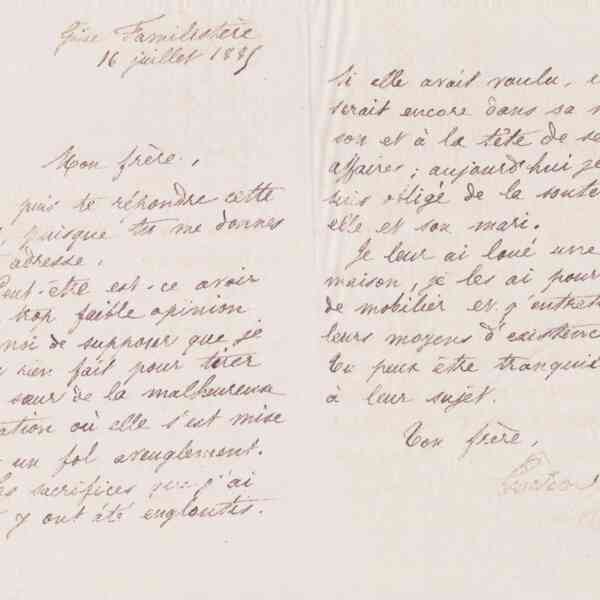 Guise Familistère
16 juillet 1885
Mon frère,
puis te répondre cette
puisque tu me donnes
adresse.
Peut-être est-ce avoir
trop faible opinion
moi de supposer que je
rien fait pour tirer
sœur de la malheureuse
ation où elle s'est mise
un fol aveuglement.
Les sacrifices que j'ai
y ont été engloutis.
Si elle avait voulu,
serait encore dans sa
son et à la tête de se
affaires ; aujourd'hui je
suis obligé de la soute
elle et son mari.
Je leur ai loué une
maison, je les ai pour
de mobilier et j'entret
leurs moyens d'existence
Tu peux être tranqui
à leur sujet.
Ton frère,